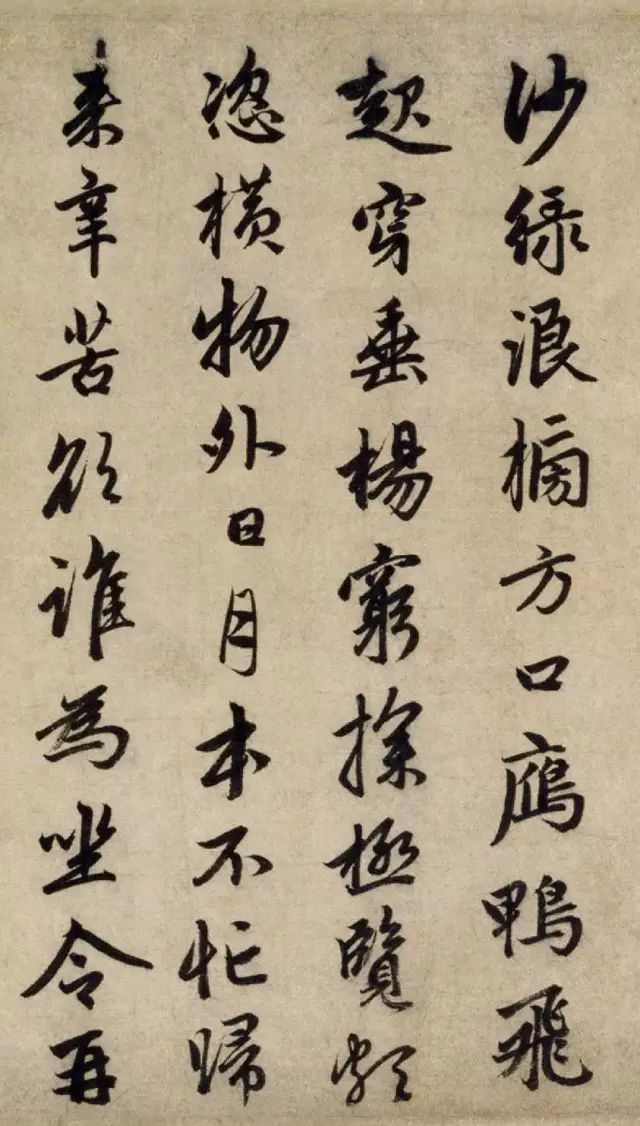 沙綠浪榜方口鴈鴨飛
起穿垂楊窮探極覽頗
恣橫物外日月本不忙歸
來辛苦欲誰為坐令再